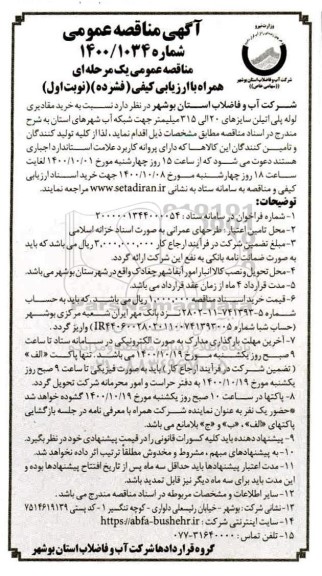 وزارت نیرو
شرکت آب و فاضلاب استان بوشهر
(سهامی خاص)
آگهی مناقصه عمومی
شماره ۱۴۰۰/۱۰۳۴
مناقصه عمومی یک مرحله ای
همراه با ارزیابی کیفی (فشرده) (نوبت اول)
شرکت آب و فاضلاب استان بوشهر در نظر دارد نسبت به خرید مقادیری
لوله پلی اتیلن سایزهای ۲۰ الی ۳۱۵ میلیمتر جهت شبکه آب شهرهای استان به شرح
مندرج در اسناد مناقصه مطابق مشخصات ذیل اقدام نماید، لذا از کلیه تولید کنندگان
و تامین کنندگان این کالاها که دارای پروانه کاربرد علامت استاندارد اجباری
هستند دعوت می شود که از ساعت ۱۵ روز چهارشنبه مورخ ۱۴۰۰/۱۰/۰۱ لغایت
ساعت ۱۸ روز چهارشنبه مورخ ۱۴۰۰/۱۰/۰۸ جهت خرید اسناد ارزیابی
کیفی و مناقصه به سامانه ستاد به نشانی www.setadiran.ir مراجعه نمایند.
توضیحات:
۱- شماره فراخوان در سامانه ستاد: ۲۰۰۰۰۰۱۳۴۴۰۰۰۰۵۴
۲- محل تامین اعتبار: طرحهای عمرانی به صورت اسناد خزانه اسلامی
۳- مبلغ تضمین شرکت در فرآیند ارجاع کار ۳,۰۰۰,۰۰۰,۰۰۰ ریال می باشد که باید
به صورت ضمانت نامه بانکی به نفع این شرکت ارائه گردد.
۴- محل تحویل و نصب کالا انبار امور آبفا شهر چغادک واقع در شهرستان بوشهر می باشد.
۵- مدت قرارداد ۴ ماه از زمان عقد قرارداد می باشد.
۶- قیمت خرید اسناد مناقصه ۱,۰۰۰,۰۰۰ ریال می باشد که باید به حساب
شماره ۵-۷۴۱۳۹۳-۱۱-۲۸۰۲ نزد بانک مهر ایران شعبه مرکزی بوشهر
(حساب شبا شماره IR۴۴۰۶۰۰۲۸۰۲۰۱۱۰۰۷۴۱۳۹۳۰۰۵) واریز گردد.
۷- آخرین مهلت بارگذاری مدارک به صورت الکترونیکی در سامانه ستاد تا ساعت
۹ صبح روز یکشنبه مورخ ۱۴۰۰/۱۰/۱۹ می باشد. تنها پاکت «الف»
(تضمین شرکت در فرآیند ارجاع کار) باید به صورت فیزیکی تا ساعت ۹ صبح روز
یکشنبه مورخ ۱۴۰۰/۱۰/۱۹ به دفتر حراست و امور محرمانه شرکت تحویل گردد.
۸- پاکتها در ساعت ۱۰ صبح روز یکشنبه مورخ ۱۴۰۰/۱۰/۱۹ گشوده خواهد شد
حضور یک نفر به عنوان نماینده شرکت همراه با معرفی نامه در جلسه بازگشایی
پاکتهای «الف»، «ب» و «ج» بلامانع می باشد.
۹- پیشنهاد دهنده باید کلیه کسورات قانونی را در قیمت پیشنهادی خود در نظر بگیرد.
۱۰- به پیشنهادهای مبهم، مشروط و مخدوش مطلقاً ترتیب اثر داده نخواهد شد.
۱۱- مدت اعتبار پیشنهادها باید حداقل سه ماه پس از تاریخ افتتاح پیشنهادها بوده و
این مدت باید برای سه ماه دیگر نیز قابل تمدید باشد.
۱۲- سایر اطلاعات و مشخصات مربوطه در اسناد مناقصه مندرج می باشد.
۱۳- نشانی شرکت: بوشهر - خیابان رئیسعلی دلواری - کوچه تنگسیر ۱ - کد پستی ۷۵۱۴۶۱۹۱۳۹
۱۴- سایت اینترنتی شرکت: https://abfa-bushehr.ir
۱۵- تلفن تماس: ۳۱۶۴۰۰۰۰-۰۷۷
گروه قراردادها شرکت آب و فاضلاب استان بوشهر